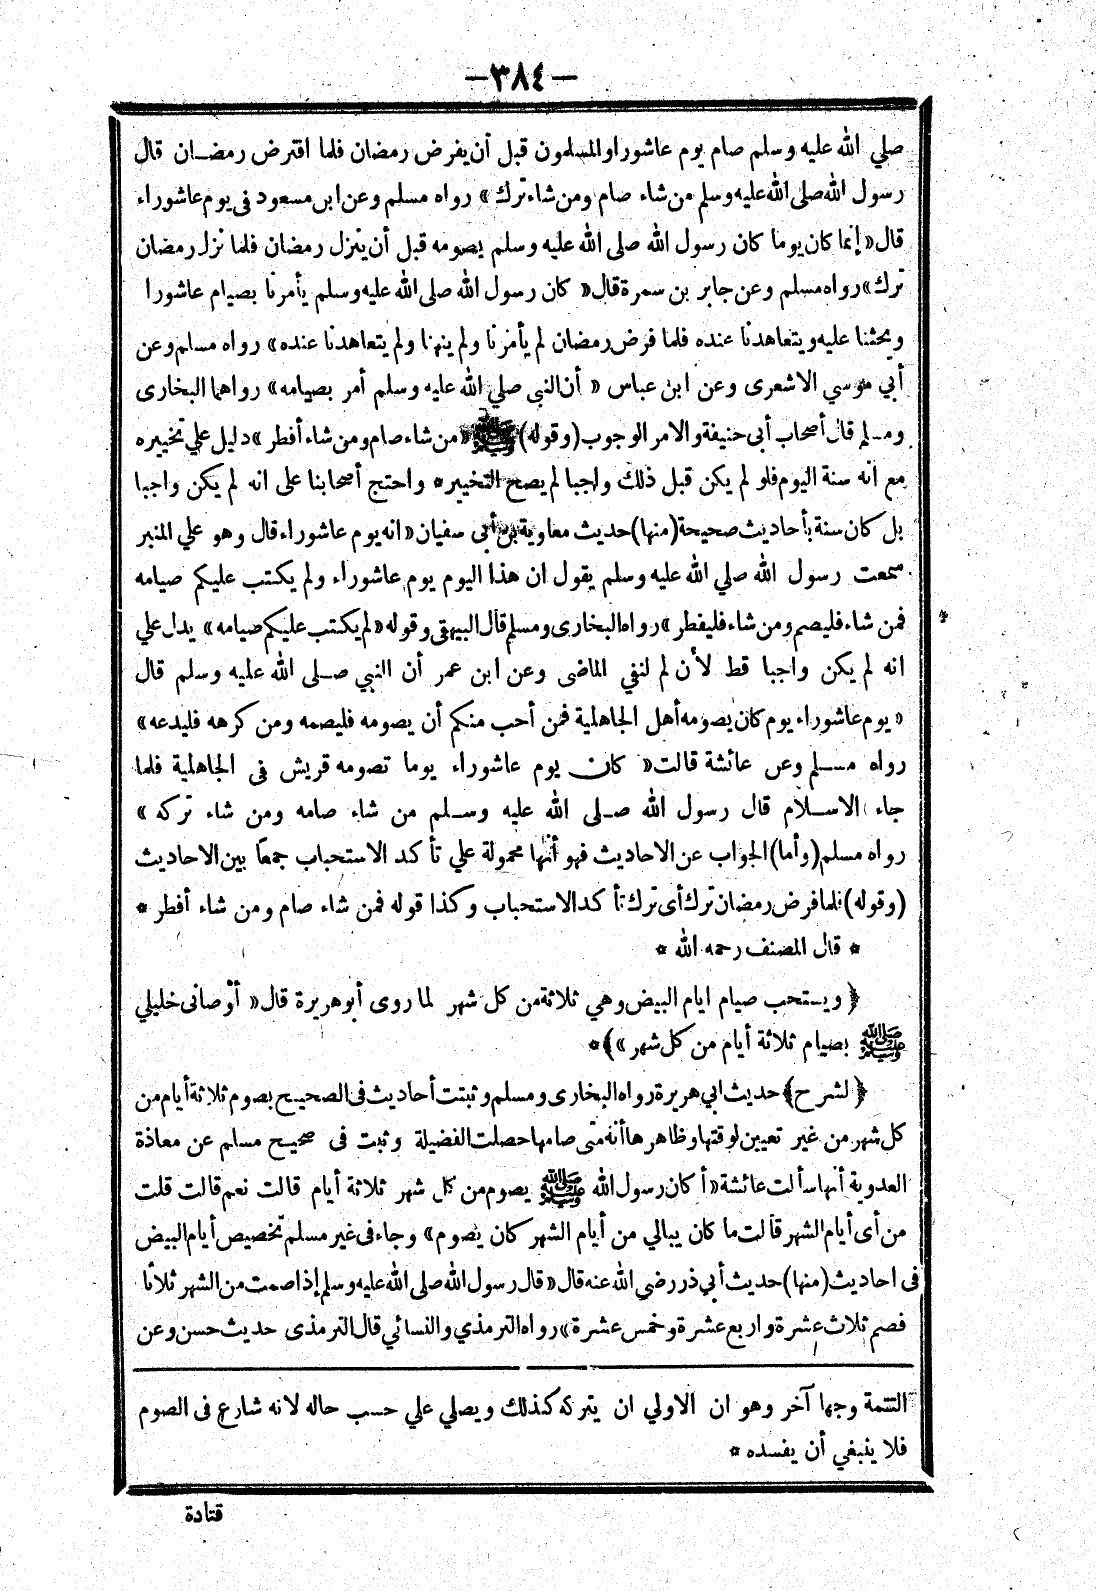 —٣٨٤—
صلي الله عليه وسلم صام يوم عاشورا والمسلمون قبل أن يفرض رمضان فلما افترض رمضان قال
رسول الله صلى الله عليه وسلم من شاء صام ومن شاء ترك » رواه مسلم وعن ابن مسعود فى يوم عاشوراء
قال « إنما كان يوما كان رسول الله صلى الله عليه وسلم يصومه قبل أن ينزل رمضان فلما نزل رمضان
ترك » رواه مسلم وعن جابر بن سمرة قال « كان رسول الله صلى الله عليه وسلم يأمرنا بصيام عاشورا
ويحثنا عليه ويتعاهدنا عنده فلما فرض رمضان لم يأمرنا ولم ينهنا ولم يتعاهدنا عنده » رواه مسلم وعن
أبي موسي الاشعرى وعن ابن عباس « أن النبي صلي الله عليه وسلم أمر بصيامه » رواهما البخارى
ومسلم قال أصحاب أبى حنيفة والامر الوجوب (وقوله) ﷺ « من شاء صام ومن شاء أفطر » دليل علي تخييره
مع انه سنة اليوم فلو لم يكن قبل ذلك واجبا لم يصح التخيير * واحتج أصحابنا على انه لم يكن واجبا
بل كان سنة بأحاديث صحيحة (منها) حديث معاوية بن أبى سفيان « انه يوم عاشوراء قال وهو علي المنبر
سمعت رسول الله صلي الله عليه وسلم يقول ان هذا اليوم يوم عاشوراء ولم يكتب عليكم صيامه
فمن شاء فليصم ومن شاء فليفطر » رواه البخارى ومسلم قال البيهقى وقوله « لم يكتب عليكم صيامه » يدل علي
انه لم يكن واجبا قط لأن لم لنفي الماضى وعن ابن عمر أن النبي صلى الله عليه وسلم قال
« يوم عاشوراء يوم كان يصومه أهل الجاهلية فمن أحب منكم أن يصومه فليصمه ومن كرهه فليدعه »
رواه مسلم وعن عائشة قالت « كان يوم عاشوراء يوما تصومه قريش فى الجاهلية فلما
جاء الاسلام قال رسول الله صلى الله عليه وسلم من شاء صامه ومن شاء تركه »
رواه مسلم (وأما) الجواب عن الاحاديث فهو أنها محمولة علي تأكد الاستحباب جمعا بين الاحاديث
(وقوله) فلما فرض رمضان ترك أى ترك تأكد الاستحباب وكذا قوله فمن شاء صام ومن شاء أفطر *
* قال المصنف رحمه الله *
﴿ ويستحب صيام ايام البيض وهي ثلاثة من كل شهر لما روى أبو هريرة قال « أوصانى خليلي
ﷺ بصيام ثلاثة أيام من كل شهر » ﴾ *
﴿ لشرح ﴾ حديث ابي هريرة رواه البخارى ومسلم وثبتت أحاديث فى الصحيح بصوم ثلاثة أيام من
كل شهر من غير تعيين لوقتها وظاهرها أنه متى صامها حصلت الفضيلة وثبت فى صحيح مسلم عن معاذة
العدوية أنها سألت عائشة « أكان رسول الله ﷺ يصوم من كل شهر ثلاثة أيام قالت نعم قالت قلت
من أى أيام الشهر قالت ما كان يبالي من أيام الشهر كان يصوم » وجاء فى غير مسلم تخصيص أيام البيض
فى احاديث (منها) حديث أبي ذر رضى الله عنه قال « قال رسول الله صلى الله عليه وسلم إذا صمت من الشهر ثلاثا
فصم ثلاث عشرة واربع عشرة وخمس عشرة » رواه الترمذي والنسائي قال الترمذى حديث حسن وعن
التتمة وجها آخر وهو ان الاولي ان يتركه كذلك ويصلي علي حسب حاله لانه شارع فى الصوم
فلا ينبغي أن يفسده *
قتادة